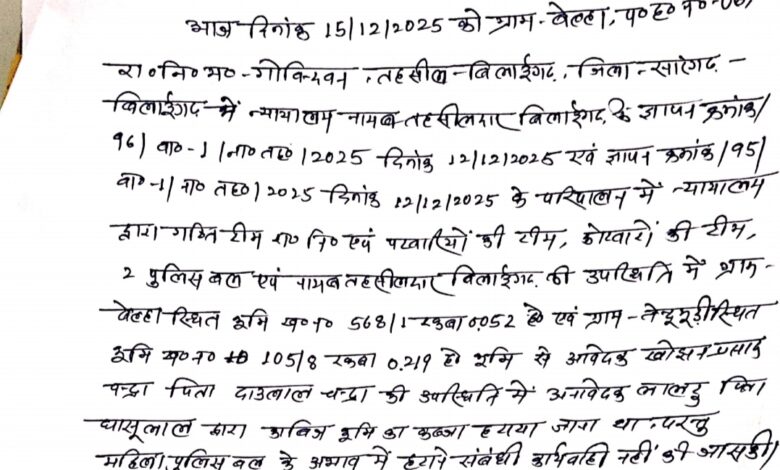 आज दिनांक 15/12/2025 को ग्राम-बेल्हा, प०ह०न०-
रा०नि०म०-गोविन्दवन, तहसील-बिलाईगढ़, जिला-सारंगढ़-
बिलाईगढ़ में न्यायालय नायब तहसीलदार बिलाईगढ़ के ज्ञापन क्रमांक/
96/वा०-1/ना०तह०/2025 दिनांक 12/12/2025 एवं ज्ञापन क्रमांक/95/
वा०-1/ना० तह०/2025 दिनांक 12/12/2025 के परिपालन में न्यायालय
द्वारा गठित टीम रा० नि० एवं पटवारियों की टीम, कोटवारों की टीम,
2 पुलिस बल एवं नायब तहसीलदार बिलाईगढ़ की उपस्थिति में ग्राम-
बेल्हा स्थित भूमि ख०न० 568/1 रकबा 0.052 हे० एवं ग्राम- स्थित
भूमि ख०न० 105/8 रकबा 0.219 हे० भूमि से आवेदक खोझन प्रसाद
चन्द्रा पिता दाउलाल चन्द्रा की उपस्थिति में अनावेदक लालटु पिता
घासूलाल द्वारा काबिज भूमि का कब्जा हटाया जाना था, परन्तु
महिला पुलिस बल के अभाव में हटाने संबंधी कार्यवाही नहीं की जा सकी।